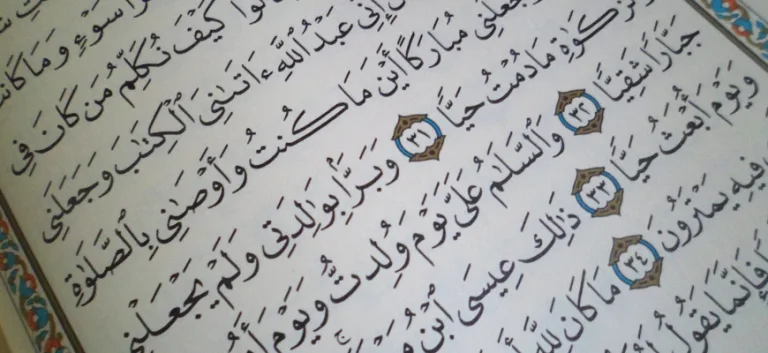 سَوْءٍ وَمَا
كَيْفَ نُكَلِّمُ مَن كَانَ فِي
إِنِّي عَبْدُ ٱللَّهِ ءَاتَىٰنِيَ ٱلْكِتَٰبَ وَجَعَلَنِي
وَجَعَلَنِي مُبَارَكًا أَيْنَ مَا كُنتُ وَأَوْصَٰنِي بِٱلصَّلَوٰةِ
مَا دُمْتُ حَيًّا ٣١ وَبَرًّۢا بِوَٰلِدَتِي وَلَمْ يَجْعَلْنِي
جَبَّارًا شَقِيًّا ٣٢ وَٱلسَّلَٰمُ عَلَيَّ يَوْمَ وُلِدتُّ وَيَوْمَ
وَيَوْمَ أُبْعَثُ حَيًّا ٣٣ ذَٰلِكَ عِيسَى ٱبْنُ
فِيهِ يَمْتَرُونَ ٣٤ مَا كَانَ لِلَّهِ
فَإِنَّمَا يَقُولُ